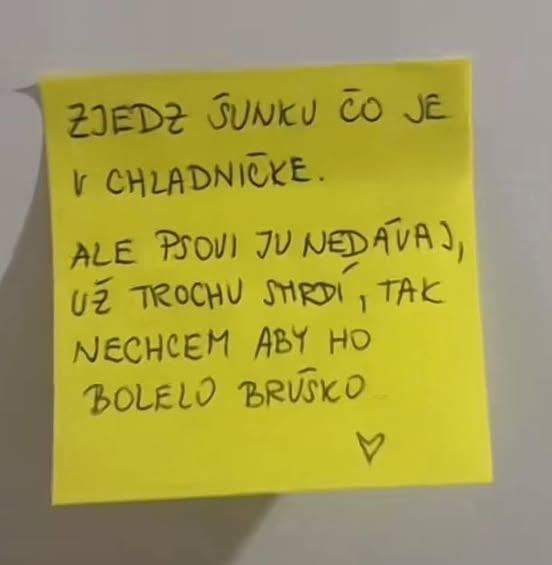 ZJEDZ ŠUNKU ČO JE
V CHLADNIČKE.
ALE PSOVI JU NEDÁVAJ,
UŽ TROCHU SMRDÍ, TAK
NECHCEM ABY HO
BOLELO BRUŠKO
♡